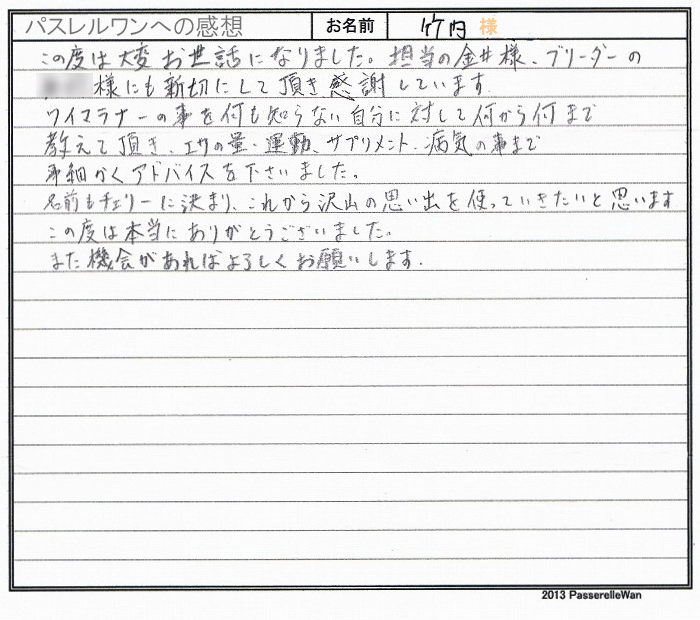 パスレルワンへの感想 お名前 竹内 様
この度は大変お世話になりました。担当の金井様、ブリーダーの
様にも新切にして頂き感謝しています
ワイマラナーの事を何も知らない自分に対して何から何まで
教えて頂き、エサの量・運動、サプリメント、病気の事まで
事細かくアドバイスを下さいました。
名前もチェリーに決まり、これから沢山の思い出を使っていきたいと思います
この度は本当にありがとうございました。
また機会があればよろしくお願いします.
2013 PasserelleWan